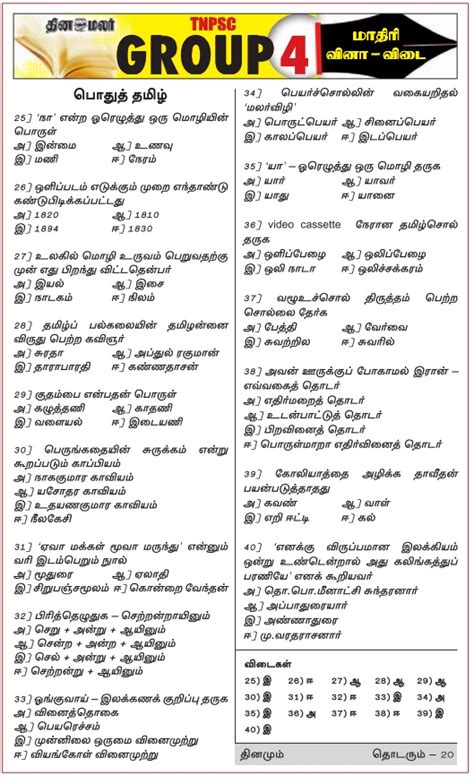 தினமலர்
TNPSC
GROUP 4
மாதிரி
வினா – விடை
பொதுத் தமிழ்
25] 'நா' என்ற ஓரெழுத்து ஒரு மொழியின்
பொருள்
அ] இன்மை ஆ] உணவு
இ] மணி ஈ] நேரம்
26] ஒளிப்படம் எடுக்கும் முறை எந்தாண்டு
கண்டுபிடிக்கப்பட்டது
அ] 1820 ஆ] 1810
இ] 1894 ஈ] 1830
27] உலகில் மொழி உருவம் பெறுவதற்கு
முன் எது பிறந்து விட்டதென்பர்
அ] இயல் ஆ] இசை
இ] நாடகம் ஈ] நிலம்
28] தமிழ்ப் பல்கலையின் தமிழன்னை
விருது பெற்ற கவிஞர்
அ] சுரதா ஆ] அப்துல் ரகுமான்
இ] தாராபாரதி ஈ] கண்ணதாசன்
29] குதம்பை என்பதன் பொருள்
அ] கழுத்தணி ஆ] காதணி
இ] வளையல் ஈ] இடையணி
30] பெருங்கதையின் சுருக்கம் என்று
கூறப்படும் காப்பியம்
அ] நாககுமார காவியம்
ஆ] யசோதர காவியம்
இ] உதயணகுமார காவியம்
ஈ] நீலகேசி
31] 'ஏவா மக்கள் மூவா மருந்து' என்னும்
வரி இடம்பெறும் நூல்
அ] மூதுரை ஆ] ஏலாதி
இ] சிறுபஞ்சமூலம் ஈ] கொன்றை வேந்தன்
32] பிரித்தெழுதுக – செற்றன்றாயினும்
அ] செறு + அன்று + ஆயினும்
ஆ] செற்று + அன்று + ஆயினும்
இ] செல் + அன்று + ஆயினும்
ஈ] செற்றன்று + ஆயினும்
33] ஓங்குவாய் – இலக்கணக் குறிப்பு தருக
அ] வினைத்தொகை
ஆ] பெயரெச்சம்
இ] முன்னிலை ஒருமை வினைமுற்று
ஈ] வியங்கோள் வினைமுற்று
34] பெயர்ச்சொல்லின் வகையறிதல்
'மலர்விழி'
அ] பொருட்பெயர் ஆ] சினைப்பெயர்
இ] காலப்பெயர் ஈ] இடப்பெயர்
35] 'யா' – ஓரெழுத்து ஒரு மொழி தருக
அ] யார் ஆ] யாவர்
இ] யாது ஈ] யானை
36] video cassette நேரான தமிழ்சொல்
தருக
அ] ஒளிப்பேழை ஆ] ஒலிப்பேழை
இ] ஒலி நாடா ஈ] ஒலிச்சக்கரம்
37] வழூஉச்சொல் திருத்தம் பெற்ற
சொல்லை தேர்க
அ] பேத்தி ஆ] வேர்வை
இ] சுவற்றில ஈ] சுவரில்
38] அவன் ஊருக்குப் போகாமல் இரான் –
எவ்வகைத் தொடர்
அ] எதிர்மறைத் தொடர்
ஆ] உடன்பாட்டுத் தொடர்
இ] பிறவினைத் தொடர்
ஈ] பொருள்மாறா எதிர்வினைத் தொடர்
39] கோலியாத்தை அழிக்க தாவீதன்
பயன்படுத்தாதது
அ] கவண் ஆ] வாள்
இ] எறி ஈட்டி ஈ] கல்
40] 'எனக்கு விருப்பமான இலக்கியம்
ஒன்று உண்டென்றால் அது கலிங்கத்துப்
பரணியே' எனக் கூறியவர்
அ] தொ.பொ.மீனாட்சி சுந்தரனார்
ஆ] அப்பாதுரையார்
இ] அண்ணாதுரை
ஈ] மு.வரதராசனார்
விடைகள்
25) இ 26) ஈ 27) ஆ 28) ஆ 29) ஆ
30) இ 31) ஈ 32) ஆ 33) இ 34) அ
35) இ 36) அ 37) ஈ 38) ஈ 39) இ
40) இ
தினமும் தொடரும் – 20